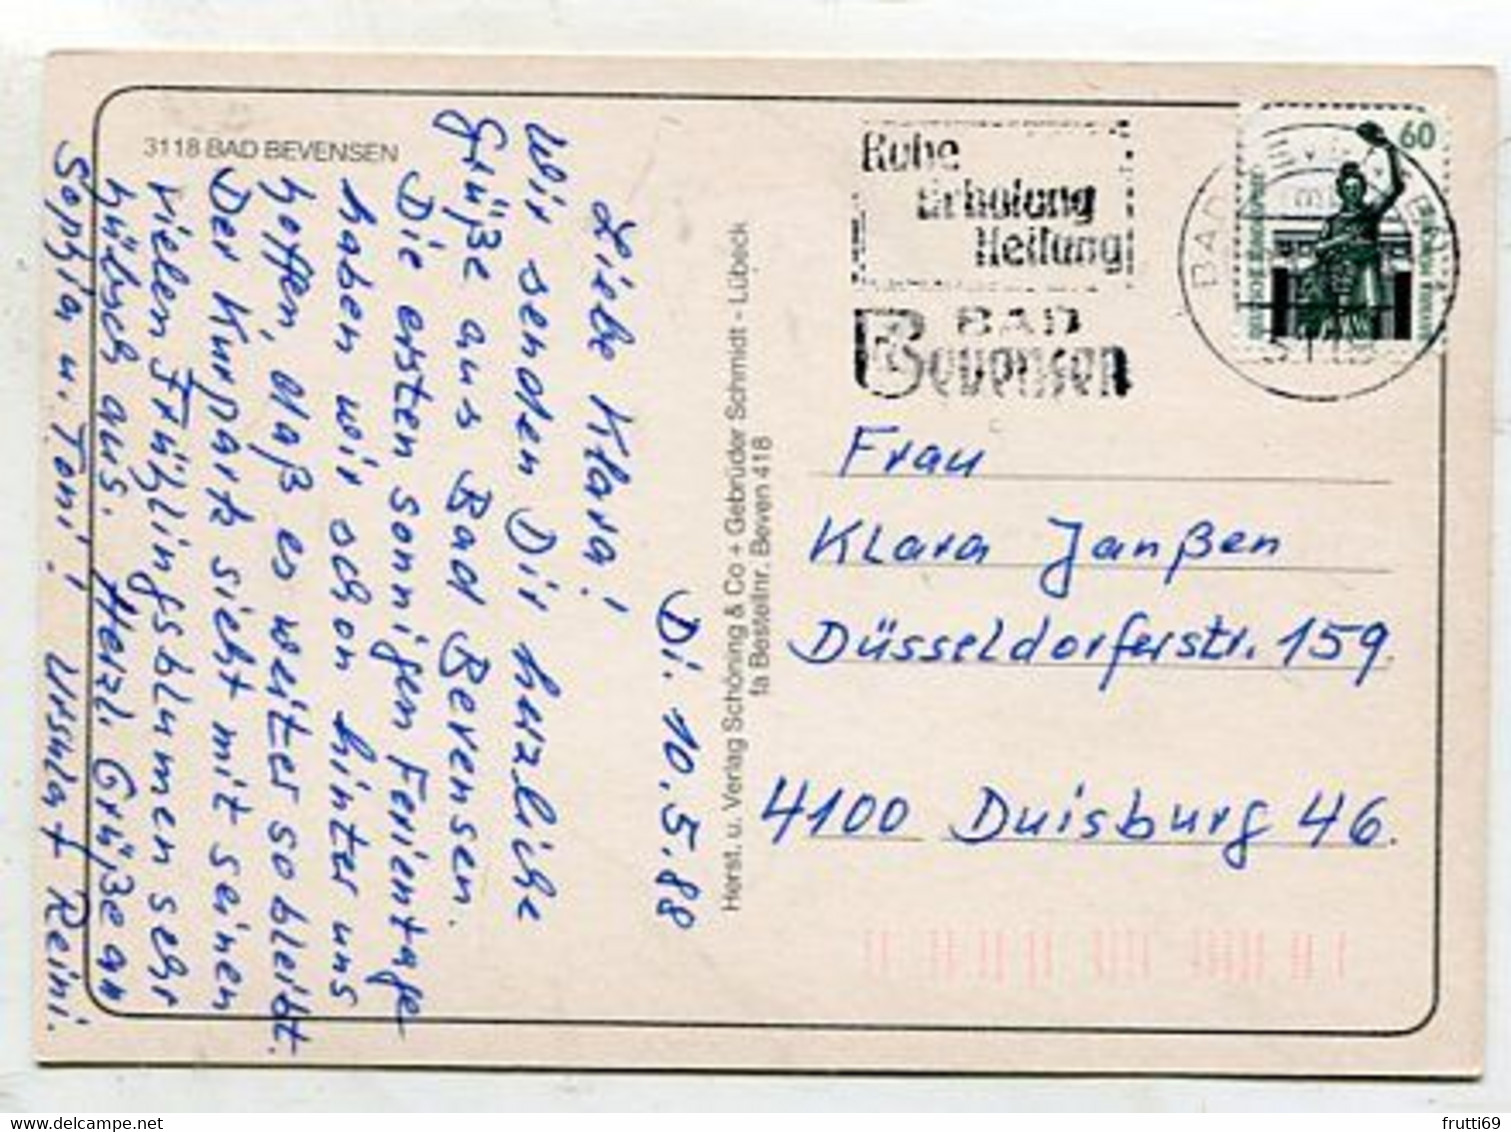 3118 BAD BEVENSEN
Di. 10.5.88
Liebe Klara!
Wir senden Dir herzliche
Grüße aus Bad Bevensen.
Die ersten sonnigen Ferientage
haben wir schon hinter uns
hoffen, daß es weiter so bleibt.
Der Kurpark sieht mit seinen
vielen Frühlingsblumen sehr
hübsch aus. Herzl. Grüße an
Sophia u. Toni! Ursula + Reini.
Herst. u. Verlag Schöning & Co + Gebrüder Schmidt - Lübeck
fa Bestellnr. Beven 418
Ruhe
Erholung
Heilung
BAD
Bevensen
60
Frau
Klara Janßen
Düsseldorferstr. 159
4100 Duisburg 46.
www.delcampe.net
frutti69